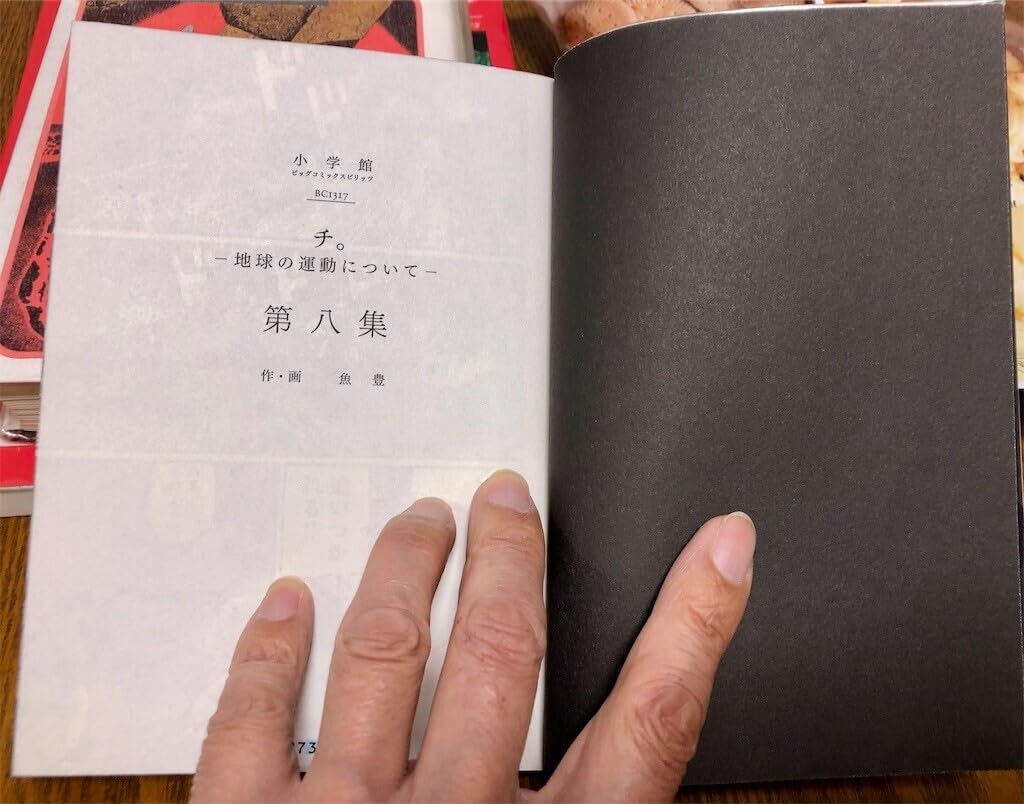 小学館
ビッグコミックスピリッツ
BC1317
チ。
－地球の運動について－
第八集
作・画　魚豊
73